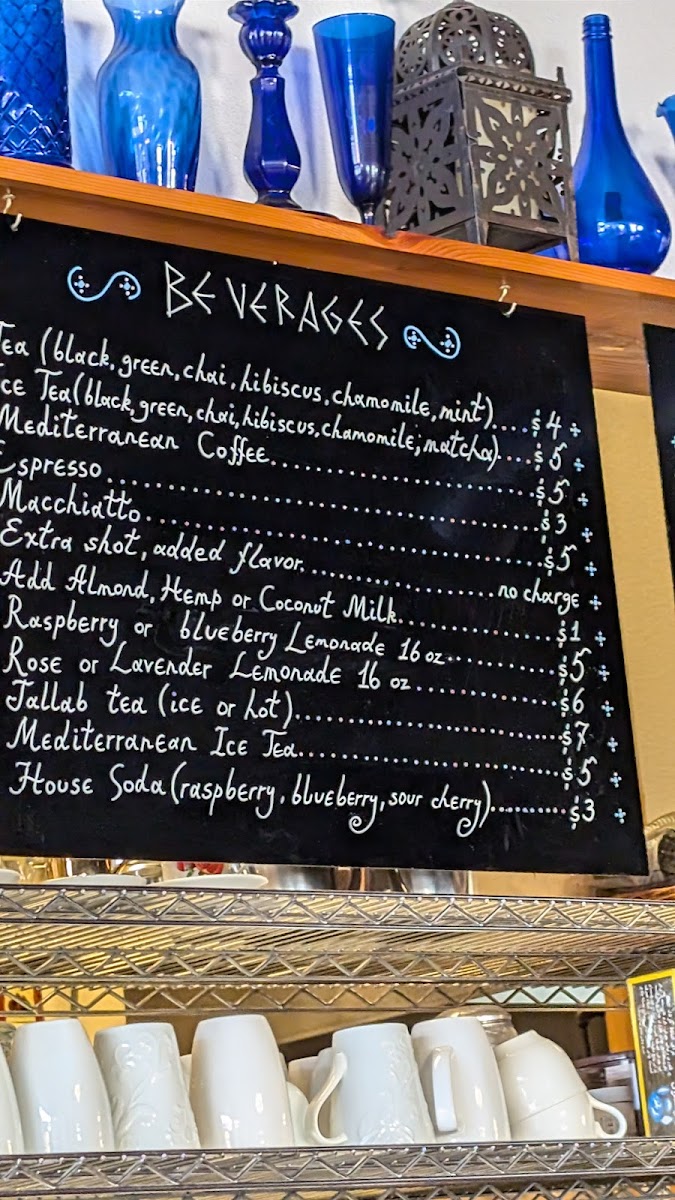 BEVERAGES
Tea (black, green, chai, hibiscus, chamomile, mint).... $4
Ice Tea (black, green, chai, hibiscus, chamomile, matcha).... $5
Mediterranean Coffee.................... $5
Espresso.................... $3
Macchiatto.................... $5
Extra shot, added flavor.................... no charge
Add Almond, Hemp or Coconut Milk.................... $1
Raspberry or blueberry Lemonade 16 oz.................... $5
Rose or Lavender Lemonade 16 oz.................... $6
Jallab tea (ice or hot).................... $7
Mediterranean Ice Tea.................... $5
House Soda (raspberry, blueberry, sour cherry)........... $3